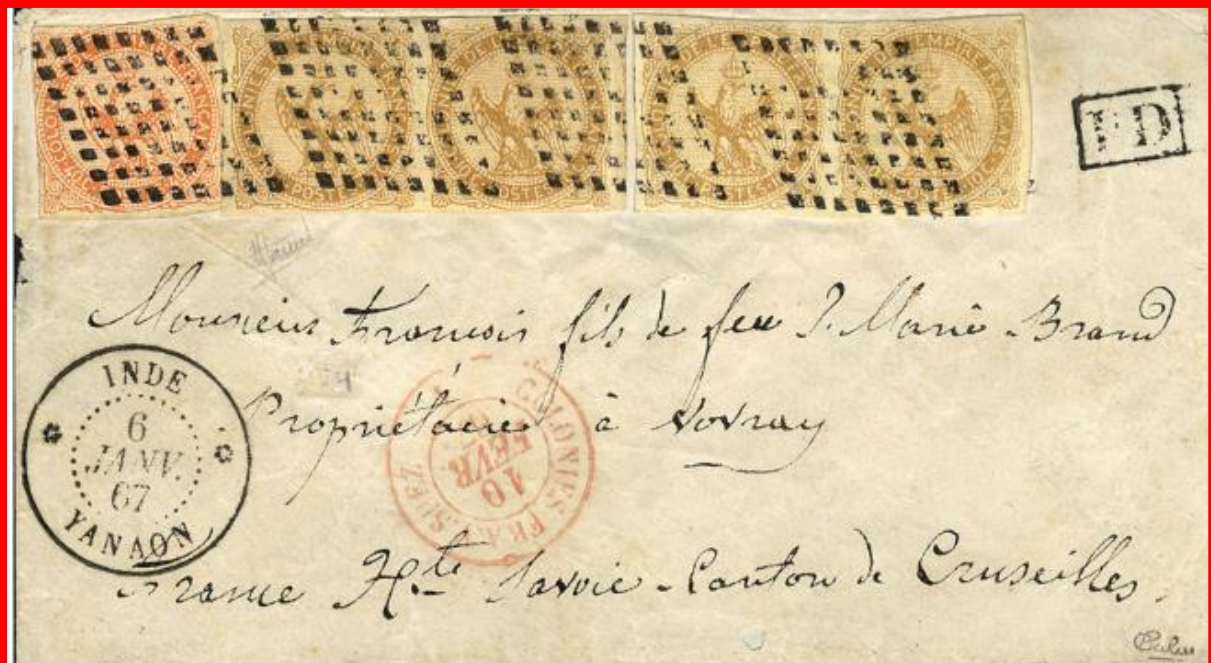 PD
Monsieur François fils de feu J. Marie Brand
Propriétaire à Vovray
INDE
6
JANV.
67
YANAON
COLONIES FRA
SUEZ
10
FEVR
France Hte Savoie - Canton de Cruseilles.